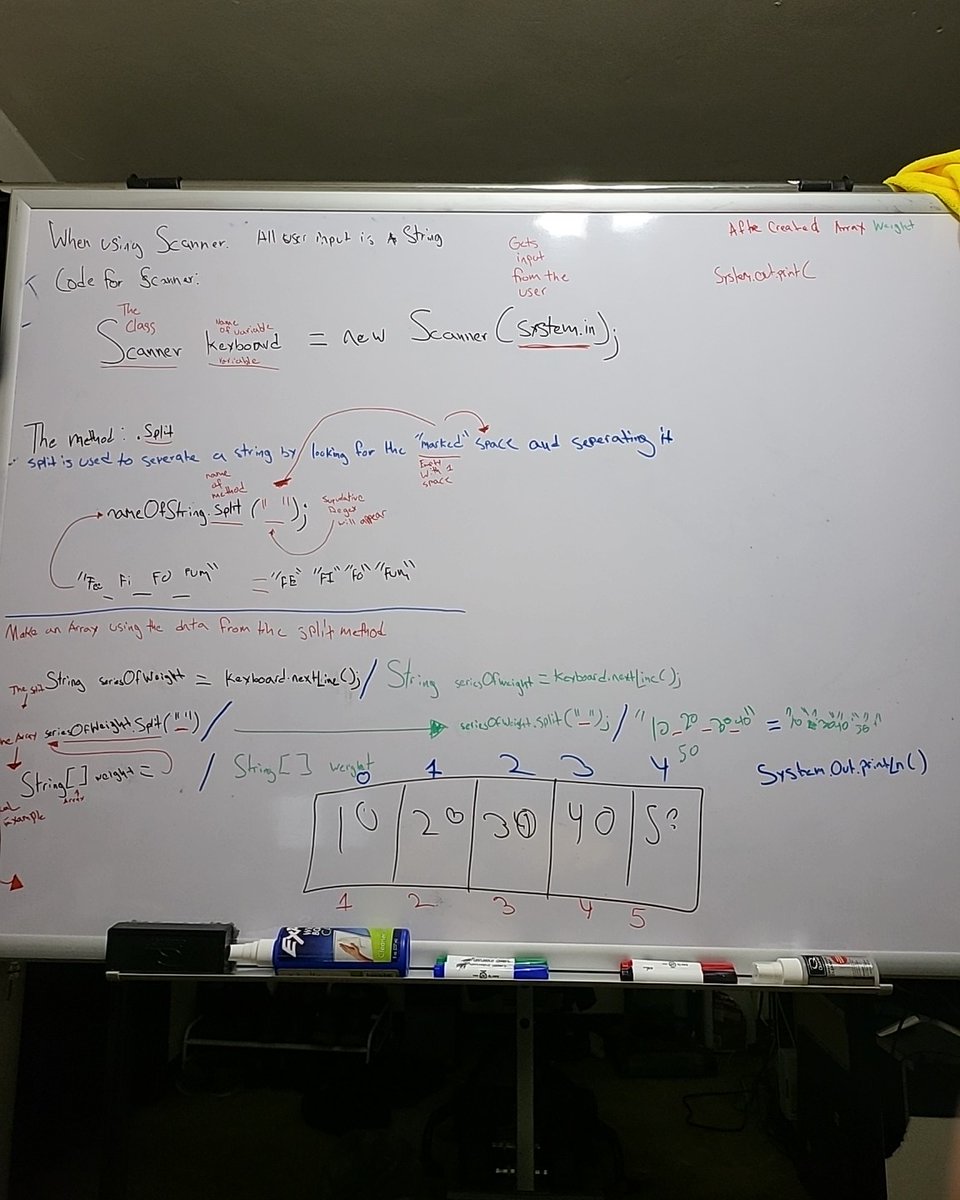 When using Scanner. All user input is A String
After Created Array Weight
Gets
input
from the
user
Code for Scanner:
System.out.print(
The
Class
name
of variable
Scanner keyboard = new Scanner(System.in);
variable
The method: .Split
split is used to seperate a string by looking for the "marked" space and seperating it
name
of
method
with 1
space
nameOfString.split (" ");
Regex
will appear
"Fee_Fi_Fo_Fum" = "FE" "FI" "FO" "Fum"
Make an Array using the data from the split method
String seriesOfWeight = keyboard.nextLine(); / String seriesOfweight = keyboard.nextLine();
seriesOfWeight.Split(" ") / seriesOfWeight.split("_"); / "10_20_30_40" =
50
String[] weight = / String[] weight
Array
System.Out.printLn()
0 1 2 3 4
10 20 30 40 50
1 2 3 4 5
Example
EXPO
Cleaner